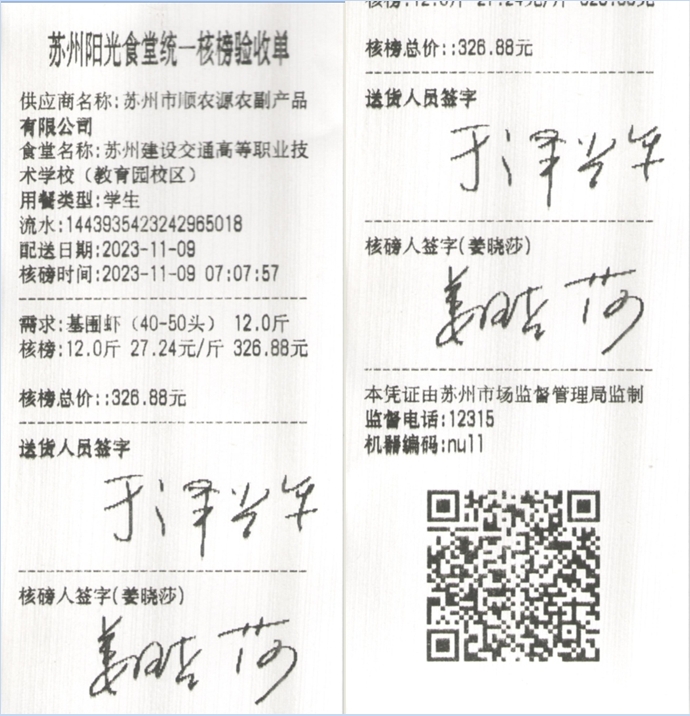 苏州阳光食堂统一核榜验收单
供应商名称:苏州市顺农源农副产品
有限公司
食堂名称:苏州建设交通高等职业技
术学校（教育园校区）
用餐类型:学生
流水:1443935423242965018
配送日期:2023-11-09
核磅时间:2023-11-09 07:07:57
需求:基围虾（40-50头） 12.0斤
核榜:12.0斤 27.24元/斤 326.88元
核榜总价::326.88元
送货人员签字
核磅人签字(姜晓莎)
姜晓莎
核榜:12.0斤 27.24元/斤 326.88元
核榜总价::326.88元
送货人员签字
核磅人签字(姜晓莎)
姜晓莎
本凭证由苏州市场监督管理局监制
监督电话:12315
机器编码:null